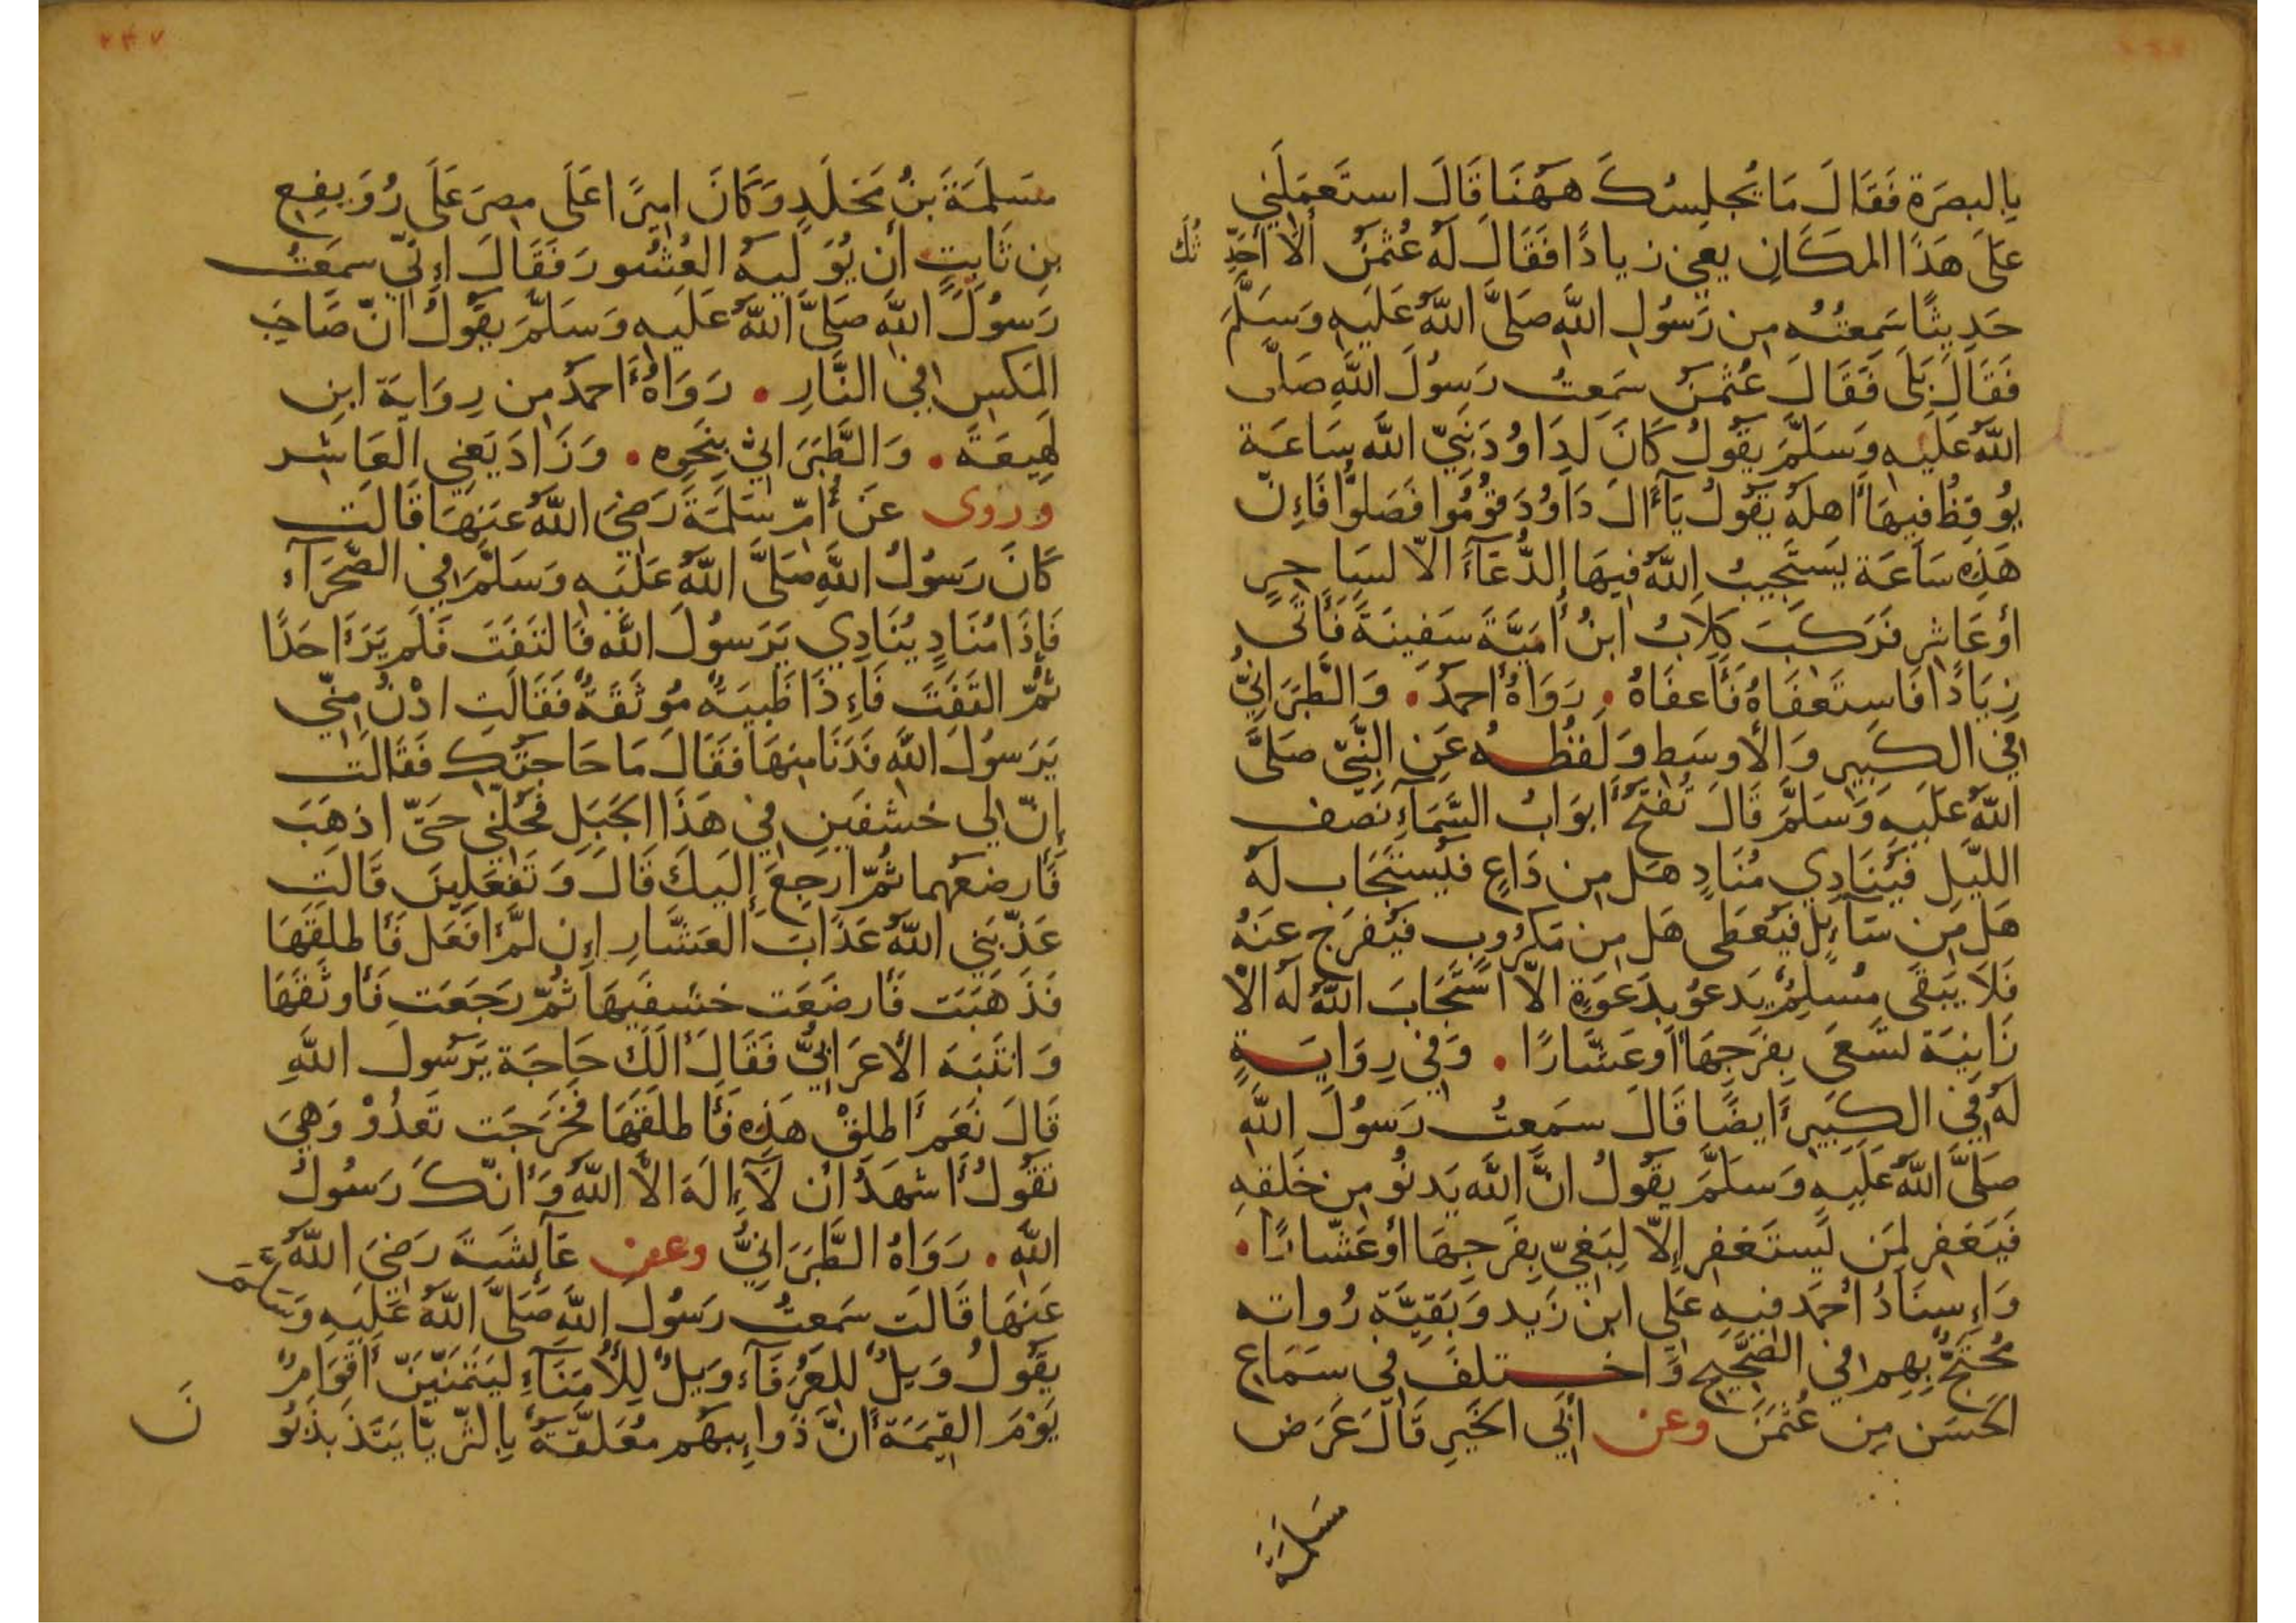 بِالبِصَرَة فَقَالَ مَا يُجلِسُكَ هٰهُنَا قَالَ استَعمَلَنِي
عَلَى هَذَا المَكَانِ يعني زيادًا فَقَالَ لَهُ عُثمٰنُ أَلَا أُحَدِّثُكَ
حَدِيثًا سَمِعتُهُ مِن رَسُولِ اللَّه صَلَّى اللَّهُ عَلَيهِ وَسَلَّمَ
فَقَالَ بَلَى فَقَالَ عُثمٰنُ سَمِعتُ رَسُولَ اللَّهِ صَلَّى
اللَّهُ عَلَيهِ وَسَلَّمَ يَقُولُ كَانَ لِدَاوُدَ نَبِيّ اللَّه سَاعَة
يُوقِظُ فِيهَا أَهلَهُ يَقُولُ يَآ أَلَ دَاوُدَ قُومُوا فَصَلُّوا فَإِنّ
هَذِهِ سَاعَة يَستَجِيبُ اللَّهُ فِيهَا الدُّعَآءَ الّا لسَاحِرٍ
أو عَاشِرٍ فَرَكَبَ كِلَابُ ابنُ أُمَيَّةَ سَفِينَةً فَأَتَى
زِيَادًا فَاستَعفَاهُ فَأَعفَاهُ . رَوَاهُ أحمدُ . وَالطَّبَرَانِيُّ
فِي الكَبِيرِ وَالأَوسَطِ وَلَفظُهُ عَنِ النَّبِيّ صَلَّى
اللَّهُ عَلَيهِ وَسَلَّمَ قَالَ تُفتَحُ أَبوَابُ السَّمَآءِ نِصف
اللّيَلِ فَيُنَادِي مُنَادٍ هَل مِن دَاعٍ فَيُستَجَاب لَهُ
هَل مِن سَآئِلٍ فَيُعطَى هَل مِن مَكرُوبٍ فَيُفرَج عَنهُ
فَلَا يَبقَى مُسلِمٌ يَدعُو بِدَعوَةٍ الّا استَجَابَ اللَّهُ لَهُ الّا
زَانِيَة تَسعَى بِفَرجِهَا أَو عَشَّارًا . وَفِي رِوَايَةٍ
لَهُ فِي الكَبِيرِ أَيضًا قَالَ سَمِعتُ رَسُولَ اللَّهِ
صَلَّى اللَّهُ عَلَيهِ وَسَلَّمَ يَقُولُ انَّ اللَّهَ يَدنُو مِن خَلقِهِ
فَيَغفِر لِمَن يَستَغفِر إِلّا لِبَغِيّ بِفَرجِهَا أو عَشَّارًا .
وَإِسنَادُ أَحمَد فِيهِ عَلِي ابن زَيد وَبَقِيَّة رُواته
مُحتَجٌّ بِهِم فِي الصَّحِيحِ وَاختلفَ فِي سَمَاع
الحَسَن مِن عُثمٰنَ وعن أَبِي الخَيرِ قَالَ عَرَض
سَلَمَة
مَسلَمَةَ بنُ مَخلَدٍ وَكَانَ امِيرًا عَلَى مِصرَ عَلَى رُوَيفِع
بنِ ثَابِتٍ أَن يُوَلِّيهِ العُشُورَ فَقَالَ إِنّي سَمِعتُ
رَسُولَ اللَّهِ صَلَّى اللَّهُ عَلَيهِ وَسَلَّمَ يَقُولُ انّ صَاحِبَ
المَكسِ فِي النَّارِ . رَوَاهُ أَحمدُ مِن رِوَايَة ابنِ
لَهِيعَةَ . وَالطَّبَرَانِيُّ بِنَحوِهِ . وَزَادَ يَعنِي العَاشِر
وروى عَن أُمّ سَلَمَةَ رَضِيَ اللَّهُ عَنهَا قَالَت
كَانَ رَسُولُ اللَّهِ صَلَّى اللَّهُ عَلَيهِ وَسَلَّمَ فِي الصَّحرَآءِ
فَإِذَا مُنَادٍ يُنَادِي يَرَسُولَ اللَّه فَالتَفَتَ فَلَم يَرَ أَحَدًا
ثُمّ التَفَتَ فَإِذَا ظَبيَةٌ مُوثَقَةٌ فَقَالَت ادْنُ مِنّي
يَرَسُولَ اللَّهِ فَدَنَا مِنهَا فَقَالَ مَا حَاجَتُكِ فَقَالَت
إِنّ لِي خشفَينِ فِي هَذَا الجَبَلِ فَحُلَّنِي حَتَّى اذهَبَ
فَأُرضعهُما ثُمّ ارجِعَ إِلَيكَ قَالَ وَتَفعَلِينَ قَالَت
عَذّبَنِي اللَّهُ عَذَابَ العَشَّارِ إِن لَّم أَفعَل فَأَطلَقَهَا
فَذَهَبَت فَأَرضَعَت خشفَيهَا ثُمّ رَجَعَت فَأَوثَقَهَا
وَانتَبَهَ الأَعرَابِيُّ فَقَالَ أَلَكَ حَاجَة يَرَسُولَ اللَّهِ
قَالَ نَعَم أَطلِقْ هَذِهِ فَأَطلَقَهَا فَخَرَجَت تَعدُوْ وَهِيَ
تَقُولُ أَشهَدُ أن لَآ إِلَهَ الّا اللَّهُ وَأَنّكَ رَسُولُ
اللَّهِ . رَوَاهُ الطَّبَرَانِيُّ وعن عَآئِشَةَ رَضِيَ اللَّهُ
عَنهَا قَالَت سَمِعتُ رَسُول اللَّهِ صَلَّى اللَّهُ عَلَيهِ وَسَلَّمَ
يَقُولُ وَيلٌ لِلعُرَفَآءِ وَيلٌ لِلأُمَنَآءِ لَيَتَمَنّيَنّ أَقوَامٌ
يَومَ القِيٰمَةِ أَنَّ ذَوَائِبهُم مُعَلَّقَةٌ بِالثُّرَيَّا يَتَذَبذَبُو
نَ